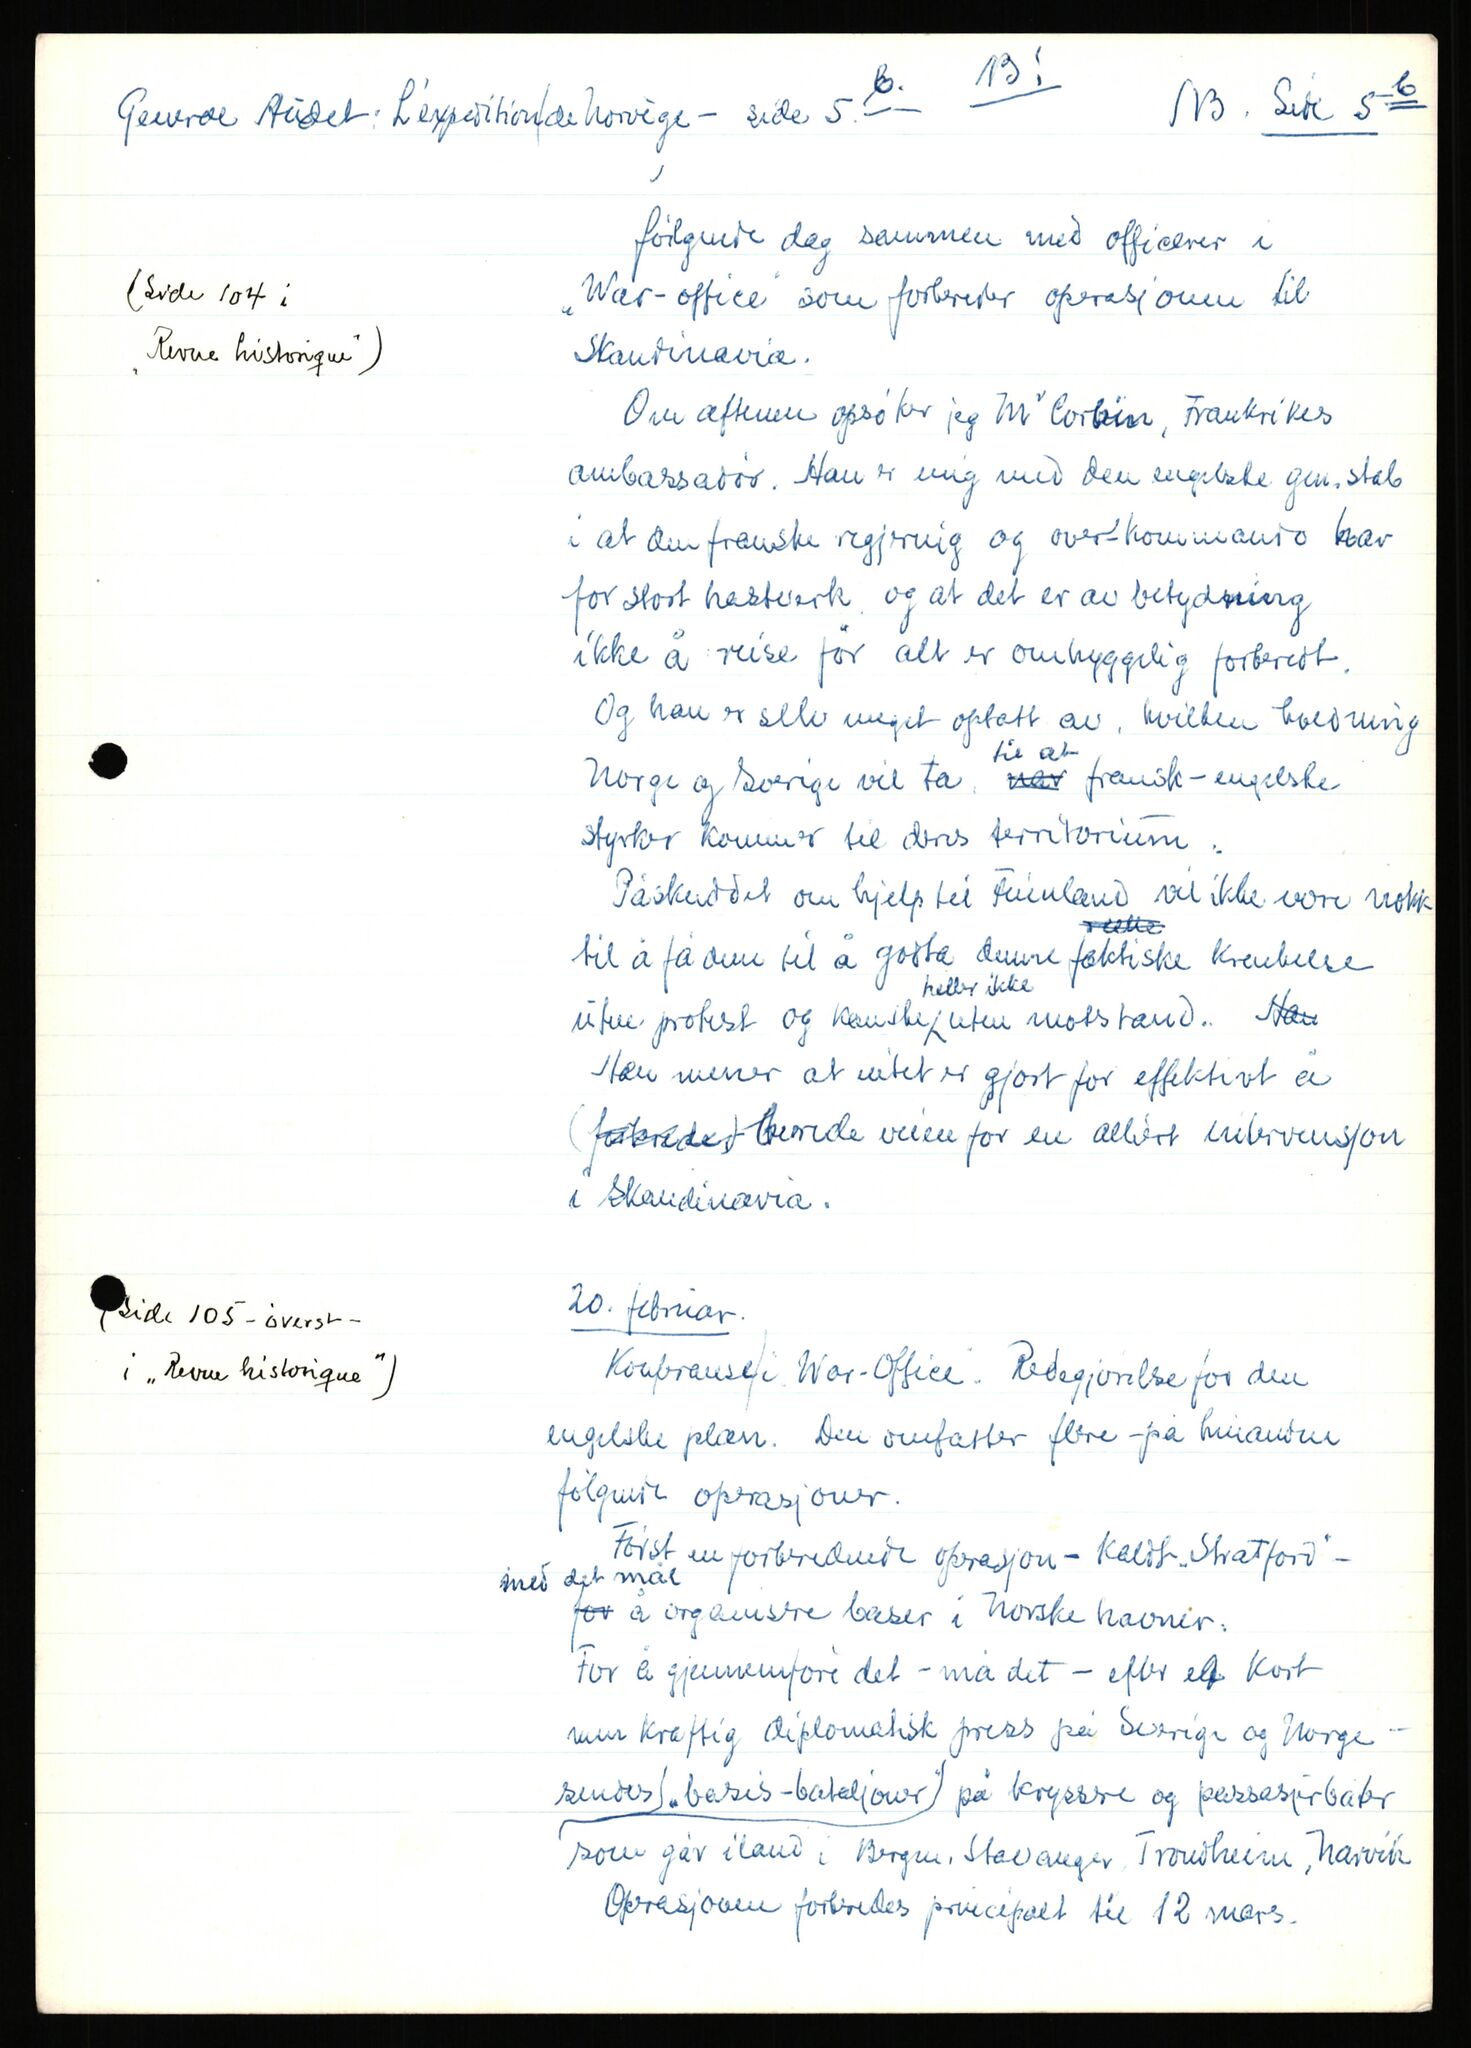 Generde Audet: L'expedition de Norvège - side 5. b.
B:
NB. Side 5 b
følgende dag sammen med officerer i
(Side 104 i
"War-office" som forbereder operasjonen til
"Revue historique")
Skandinavia.
Om aftenen opsøker jeg Mr Corbin, Frankrikes
ambassadør. Han er enig med den engelske gen. stab
i at den franske regjering og over-kommando har
for stort hastverk, og at det er av betydning
ikke å reise før alt er omhyggelig forberedt.
Og han er selv meget optatt av, hvilken holdning
Norge og Sverige vil ta, når til at fransk-engelske
styrker kommer til deres territorium.
Påskuddet om hjelp til Finnland vil ikke være nokk
til å få dem til å godta denne faktiske krenkelse
uten protest og kanske heller ikke uten motstand. Han
Han mener at intet er gjort for effektivt å
(forberede) berede veien for en alliert intervensjon
i Skandinavia.
(Side 105 - øverst -
i "Revue historique")
20. februar.
Konferanse i "War-Office". Redegjørelse for den
engelske plan. Den omfatter flere - på hinanden
følgende operasjoner.
Først en forberedende operasjon - kaldt "Stratford" -
med det mål
for å organisere baser i Norske havner.
For å gjennemføre det - må det - efter et kort
men kraftig diplomatisk press på Sverige og Norge -
sendes ("basis-bataljoner") på kryssere og passasjerbåter
som går iland i Bergen, Stavanger, Trondheim, Narvik
Operasjonen forberedes principalt til 12 mars.